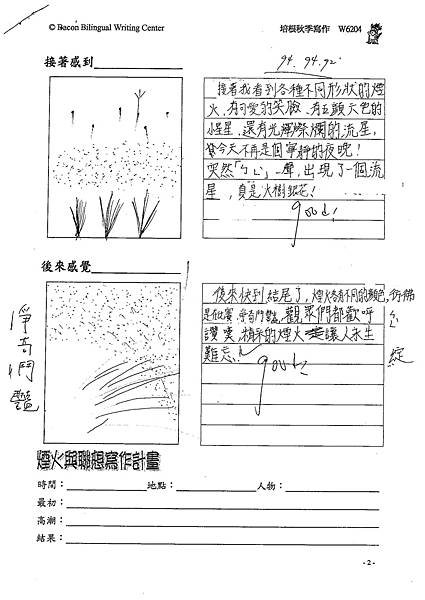 © Bacon Bilingual Writing Center
培根秋季寫作 W6204
接著感到
94. 94. 92
接著我看到各種不同形狀的煙
火,有可愛的笑臉、有五顏六色的
小星星,還有光輝燦爛的流星,
今天不再是個寧靜的夜晚!
突然「ㄅㄥ」一聲,出現了一個流
星,真是火樹銀花!
good!
後來感覺
後來快到結尾了,煙火各有不同的顏色,彷彿
是在比賽 爭奇鬥豔,觀眾們都歡呼
讚嘆,精采的煙火讓人永生
難忘!
good!
爭奇鬥豔
綻
煙火與聯想寫作計畫
時間: 地點: 人物:
最初:
高潮:
結果:
- 2 -